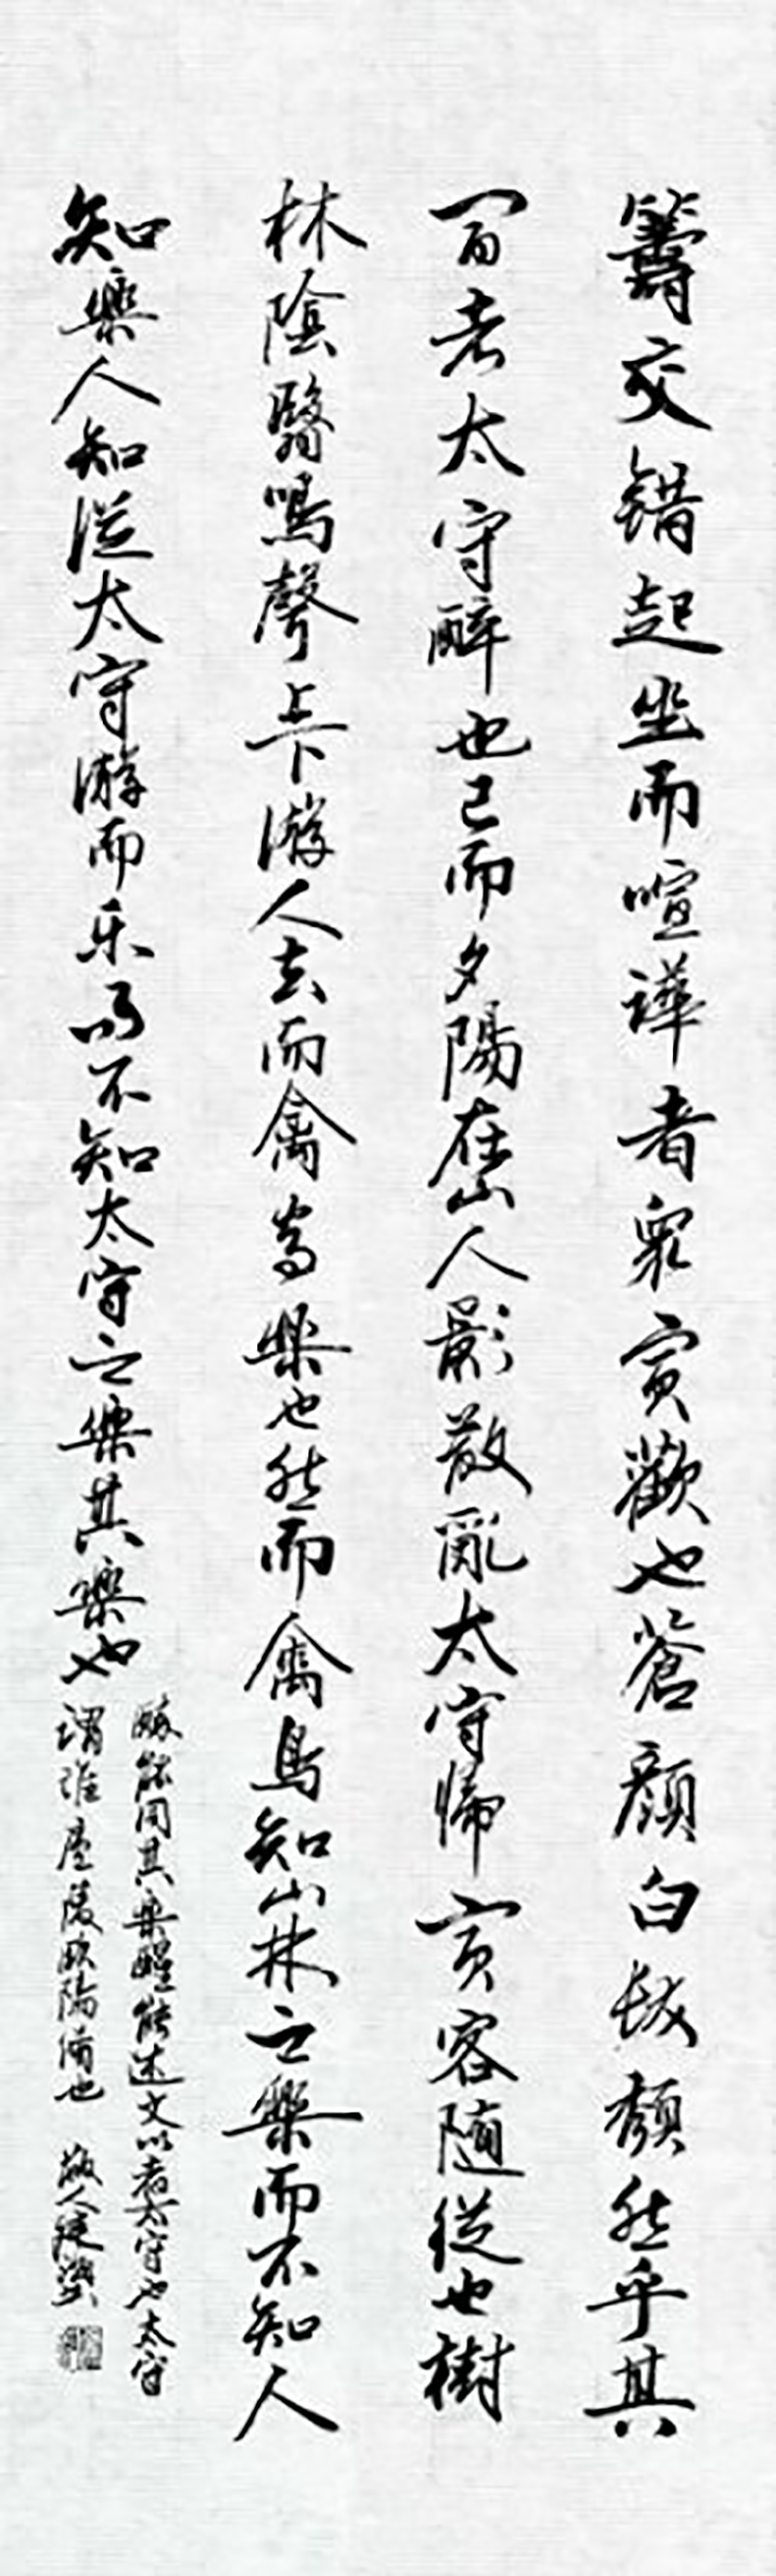 籌交錯起坐而喧譁者眾賓歡也蒼顏白髮頹然乎其
間者太守醉也已而夕陽在山人影散亂太守歸賓客隨從也樹
林陰翳鳴聲上下游人去而禽鳥樂也然而禽鳥知山林之樂而不知人
知樂人知從太守游而乐而不知太守之樂其樂也
醉能同其樂醒能述文以者太守也太守
謂誰廬陵歐陽脩也